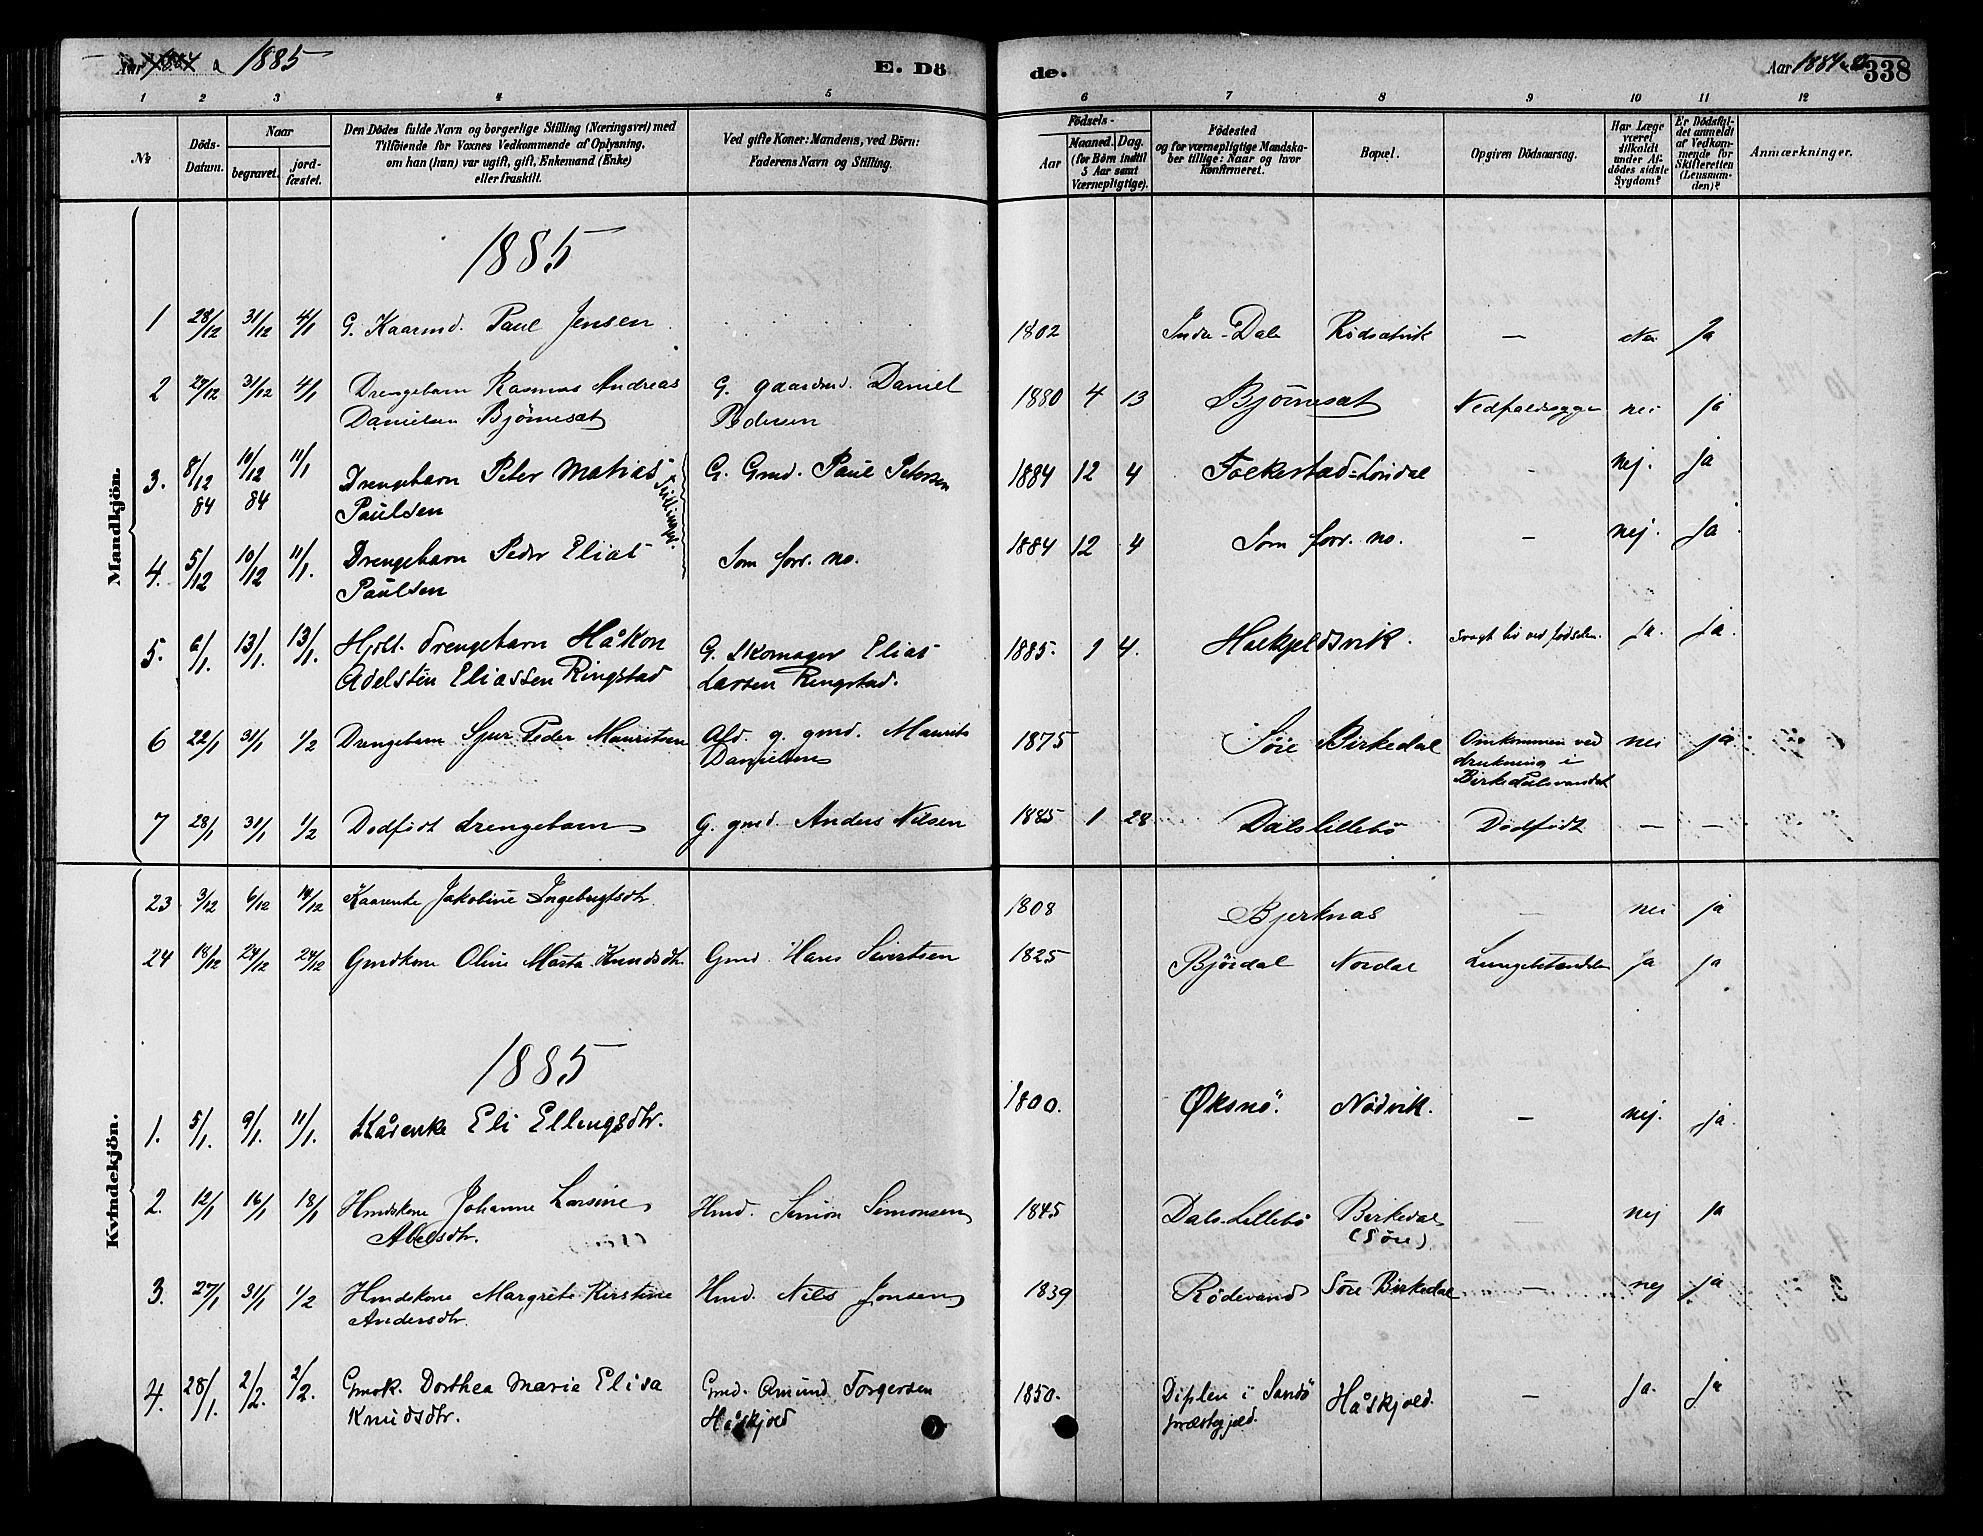 Aar 1884 a 1885
E. Dö
de.
Aar 1884-85
338
1 2 3 4 5 6 7 8 9 10 11 12
No
Döds-Datum.
Naar
begravet.
jord-fæstet.
Den Dödes fulde Navn og borgerlige Stilling (Næringsvei) med
Tilföiende for Voxnes Vedkommende af Oplysning,
om han (hun) var ugift, gift, Enkemand (Enke)
eller fraskilt.
Ved gifte Koner: Mandens, ved Börn:
Faderens Navn og Stilling.
Födsels-
Aar
Maaned. Dag.
(for Börn indtil
5 Aar samt
Værnepligtige).
Födested
og for værnepligtige Mandska-
ber tillige: Naar og hvor
Konfirmeret.
Bopæl.
Opgiven Dödsaarsag.
Har Læge
været
tilkaldt
under Af-
dödes sidste
Sygdom?
Er Dödsfal-
det anmeldt
af Vedkom-
mende for
Skifteretten
(Lensman-
den)?
Anmærkninger.
Mandkjön.
1885
1 28/12 31/12 4/1 G. Kaarmd. Paul Jensen 1802 Indre-Dale Rödsætvik — Nei Ja
2 27/12 31/12 4/1 Drengebarn Rasmus Andreas G. gaardmd. Daniel 1880 4 13 Bjørnesæt Nedfaldssyge nei ja
Danielsen Bjørnesæt Pedersen
3. 8/12 84 10/12 84 11/1 Drengebarn Peter Matias G. Gmd. Paul Petersen 1884 12 4 Folkestad - nej. ja
Paulsen
Tvillinger.
4. 5/12 10/12 11/1. Drengebarn Peder Elias Som forr. no. 1884 12 4 Som forr. no. - nej. Ja
Paulsen
5. 6/1. 13/1. 13/1. Hjdt. drengebarn Håkon G. Skomager Elias 1885. 1 4. Halkjeldsvik. Svagt liv ved fødselen. Ja. Ja.
Adelsten Eliassen Ringstad Larsen Ringstad.
6 22/1 31/1 1/2 Drengebarn Sjur Peder Mauritsen Afd. g. gmd. Maurits 1875 Söre Birkedal Omkommen ved nei ja
Danielsen drukning i
Birkedalsvandet
7 28/1 31/1 1/2 Dødfødt drengebarn G. gmd. Anders Nilsen 1885 1 28 Dalslillebø Dødfødt — —
Kvindekjön.
23 3/12 6/12 14/12 Kaarenke Jakobine Ingebrigtsdtr. 1808 Bjerknæs — nei ja
24 18/12 24/12 24/12 Gmdkone Oline Marta Knudsdtr. Gmd. Hans Sivertsen 1825 Bjørdal Nordal Lungebetændelse Ja ja
1885
1. 5/1. 9/1. 11/1. Kårenke Eli Ellingsdtr. 1800. Øksnø. Nødvik. — nej. ja.
2. 12/1 16/1 18/1 Hmdskone Johanne Larsine Hmd. Simon Simonsen 1845 Dals-Lillebø Birkedal — nej ja
Abelsdtr. (Söre)
3. 27/1 31/1 1/2 Hmdskone Margrete Kirstine Hmd. Nils Jonsen 1839 Rödevand Söre Birkedal — nej ja
Andersdtr.
4. 28/1. 2/2. 2/2. Gmdk. Dorthea Marie Elisa Gmd. Amund Torgersen 1850. Diplen i Sandø Håskjold. — Ja. ja
Knudsdtr. Håskjold præstegjeld.